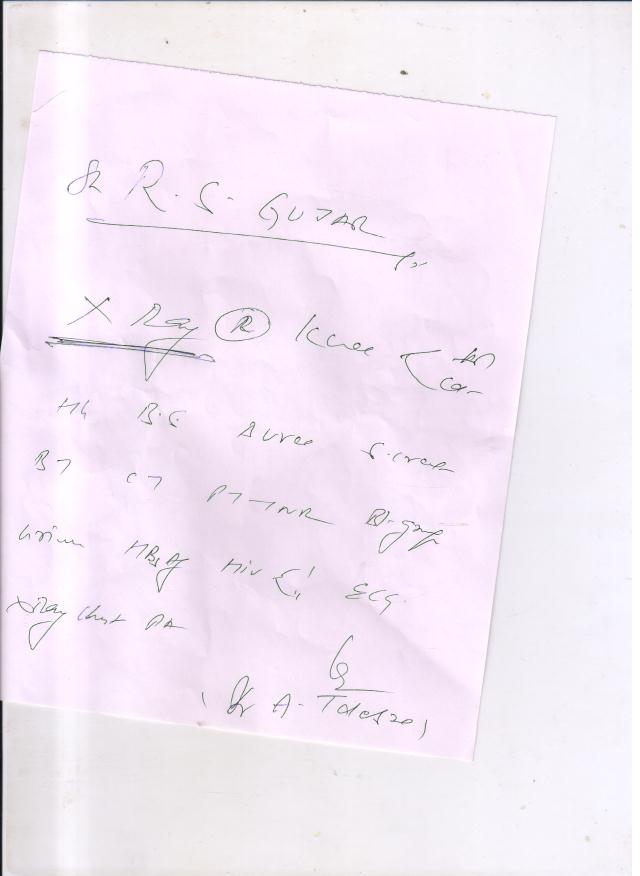 R. S. GUJAR
X Ray (R) Knee < AP
Hb B.S B urea S. creat
BT CT PT-INR Bl. group
Urine HBsAg HIV ECG
X Ray Chest PA
(Dr A.